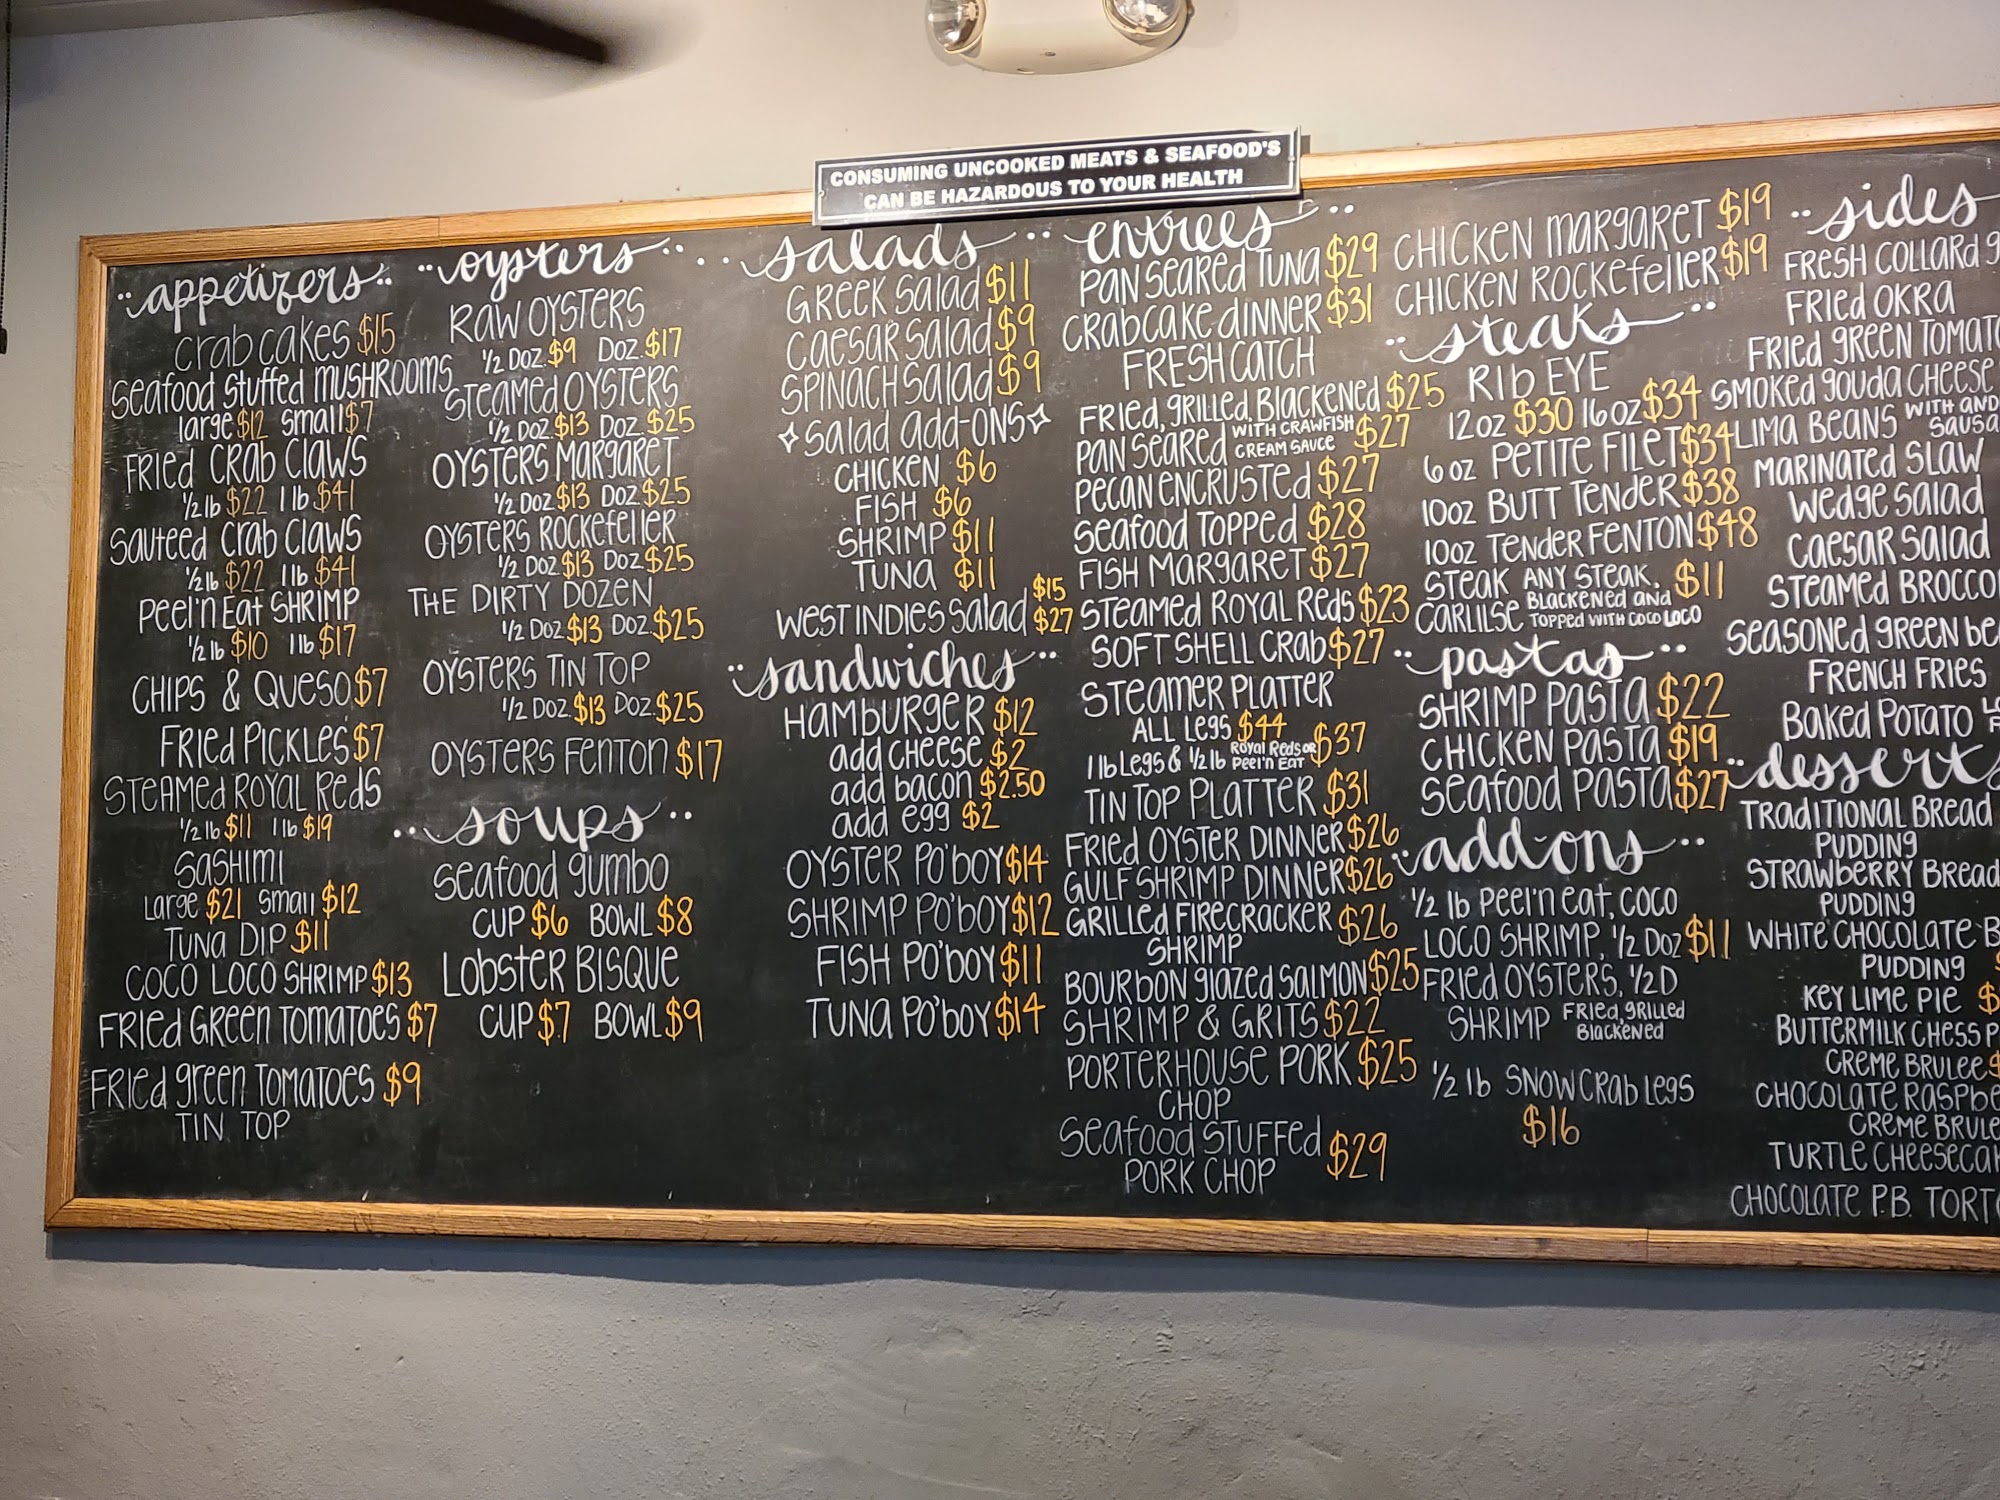 CONSUMING UNCOOKED MEATS & SEAFOOD'S
CAN BE HAZARDOUS TO YOUR HEALTH
appetizers
Crab cakes $15
Seafood Stuffed MUSHROOMS
large $12 small $7
FRIED CRAB CLAWS
1/2 lb $22 1 lb $41
Sauteed Crab Claws
1/2 lb $22 1 lb $41
Peel'n Eat SHRIMP
1/2 lb $10 1 lb $17
CHIPS & QUESO $7
FRIED PICKLES $7
STEAMED ROYAL REDS
1/2 lb $11 1 lb $19
SASHIMI
Large $21 Small $12
TUNA DIP $11
COCO LOCO SHRIMP $13
FRIED GREEN TOMATOES $7
FRIED green TOMATOES $9
TIN TOP
oysters
RAW OYSTERS
1/2 DOZ. $9 DOZ. $17
STEAMED OYSTERS
1/2 DOZ. $13 DOZ. $25
OYSTERS MARGARET
1/2 DOZ. $13 DOZ. $25
OYSTERS ROCKEFELLER
1/2 DOZ. $13 DOZ. $25
THE DIRTY DOZEN
1/2 DOZ. $13 DOZ. $25
OYSTERS TIN TOP
1/2 DOZ. $13 DOZ. $25
OYSTERS FENTON $17
soups
Seafood gumbo
CUP $6 BOWL $8
LOBSTER BISQUE
CUP $7 BOWL $9
salads
GREEK Salad $11
CAESAR Salad $9
SPINACH Salad $9
Salad add-ONS
CHICKEN $6
FISH $6
SHRIMP $11
TUNA $11
$15
WEST INDIES Salad $27
sandwiches
HAMBURGER $12
add CHEESE $2
add bacon $2.50
add egg $2
OYSTER PO'BOY $14
SHRIMP PO'BOY $12
FISH PO'BOY $11
TUNA PO'BOY $14
entrees
PAN SEARED TUNA $29
CRABCAKE DINNER $31
FRESH CATCH
FRIED, GRILLED, BLACKENED $25
PAN SEARED WITH CRAWFISH CREAM SAUCE $27
PECAN ENCRUSTED $27
Seafood Topped $28
FISH MARGARET $27
STEAMED ROYAL REDS $23
SOFT SHELL CRAB $27
STEAMER PLATTER
ALL LEGS $44
1 lb Legs & 1/2 lb Royal Reds or Peel'n Eat $37
TIN TOP PLATTER $31
FRIED OYSTER DINNER $26
GULF SHRIMP DINNER $26
GRILLED FIRECRACKER $26
SHRIMP
BOURBON glazed SALMON $25
SHRIMP & GRITS $22
PORTERHOUSE PORK $25
CHOP
Seafood STUFFED $29
PORK CHOP
CHICKEN MARGARET $19
CHICKEN ROCKEFELLER $19
steaks
RIB EYE
12 oz $30 16 oz $34
6 oz PETITE FILET $34
10oz BUTT TENDER $38
10oz TENDER FENTON $48
STEAK ANY STEAK, $11
CARLILSE BLACKENED AND
TOPPED WITH COCO LOCO
pastas
SHRIMP PASTA $22
CHICKEN PASTA $19
SEAFOOD PASTA $27
add-ons
1/2 lb Peel'n eat, COCO
LOCO SHRIMP, 1/2 DOZ $11
FRIED OYSTERS, 1/2 D
SHRIMP FRIED, GRILLED
BLACKENED
1/2 lb SNOW CRAB LEGS
$16
sides
FRESH COLLARD g
FRIED OKRA
FRIED GREEN TOMAT
SMOKED gouda CHEESE
LIMA BEANS WITH AND
SAUSA
MARINATED SLAW
WEDGE SALAD
CAESAR SALAD
STEAMED BROCCO
SEASONED GREEN be
FRENCH FRIES
BAKED POTATO
desserts
TRADITIONAL BREAD
PUDDING
STRAWBERRY BREAD
PUDDING
WHITE CHOCOLATE B
PUDDING
KEY LIME PIE $
BUTTERMILK CHESS P
CREME BRULEE $
CHOCOLATE RASPBE
CREME BRULE
TURTLE CHEESECAK
CHOCOLATE P.B. TORT